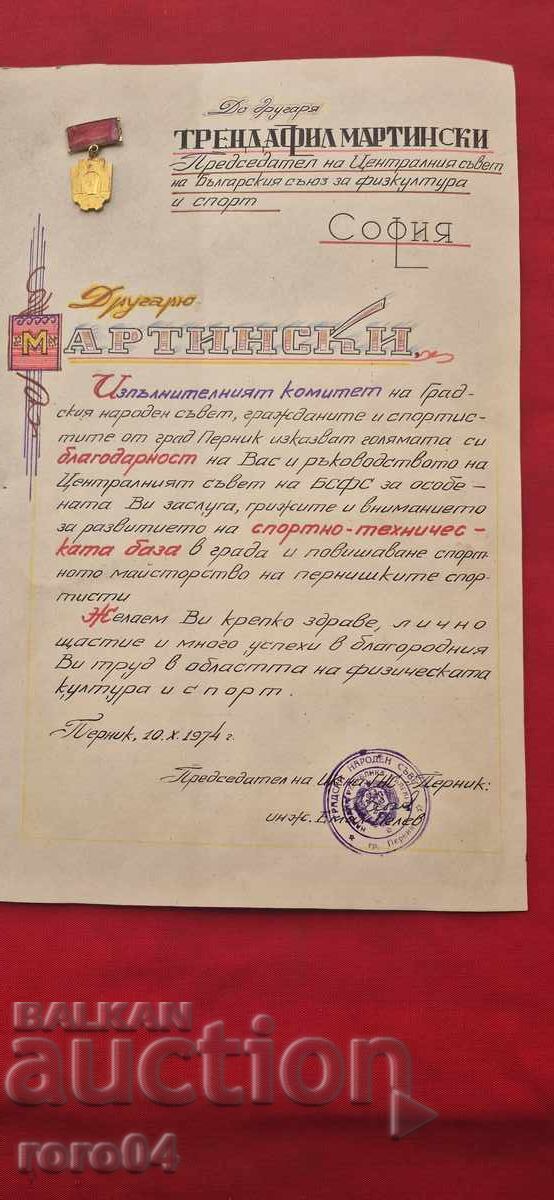 До другаря
ТРЕНДАФИЛ МАРТИНСКИ
Председател на Централния съвет
на Български съюз за физкултура
и спорт
София
Другарю
МАРТИНСКИ,
Изпълнителният комитет на Град-
ския народен съвет, гражданите и спортис-
тите от град Перник изказват голямата си
благодарност на Вас и ръководството на
Централният съвет на БСФС за особе-
ната Ви заслуга, грижите и вниманието
за развитието на спортно-техничес-
ката база в града и повишаване спорт-
ното майсторство на пернишките спор-
тисти
Желаем Ви крепко здраве, лично
щастие и много успехи в благородния
Ви труд в областта на физическата
култура и спорт.
Перник, 10.X.1974 г.
Председател на ИК на Перник:
инж.
ГРАДСКИ НАРОДЕН СЪВЕТ
гр. Перник
BALKAN
auction
roro04